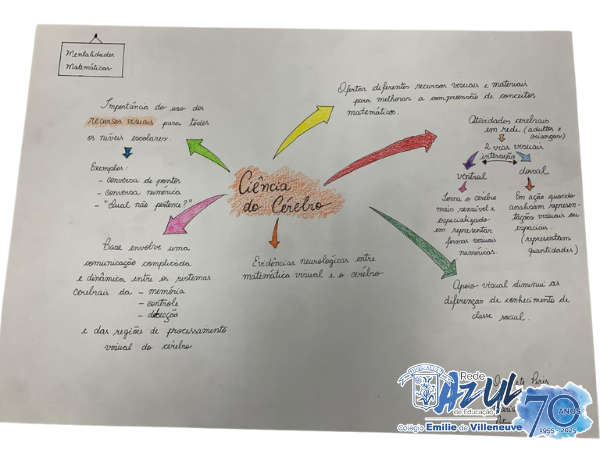 Mentalidades
Matemáticas
Importância do uso dos
recursos visuais para todos
os níveis escolares.
Exemplos:
- conversa de pontos
- conversa numérica
- "Qual não pertence?"
Ofertar diferentes recursos visuais e materiais
para melhorar a compreensão de conceitos
matemáticos.
Atividades cerebrais
em rede (adultos e
crianças)
2 vias visuais
interação
ventral
dorsal
Torna o cérebro
mais sensível e
especializado
em representar
formas visuais
numéricas.
Em ação quando
analisam represen-
tações visuais ou
espaciais.
(representam
quantidades)
Ciência
do Cérebro
Base envolve uma
comunicação complicada
e dinâmica entre os sistemas
cerebrais da - memória
- controle
- detecção
e das regiões de processamento
visual do cérebro
Evidências neurológicas entre
matemática visual e o cérebro
Apoio visual diminui as
diferenças de conhecimento de
classe social.
Rede
AZUL
de Educação
Colégio Emilie de Villeneuve
70 ANOS
1955 2025